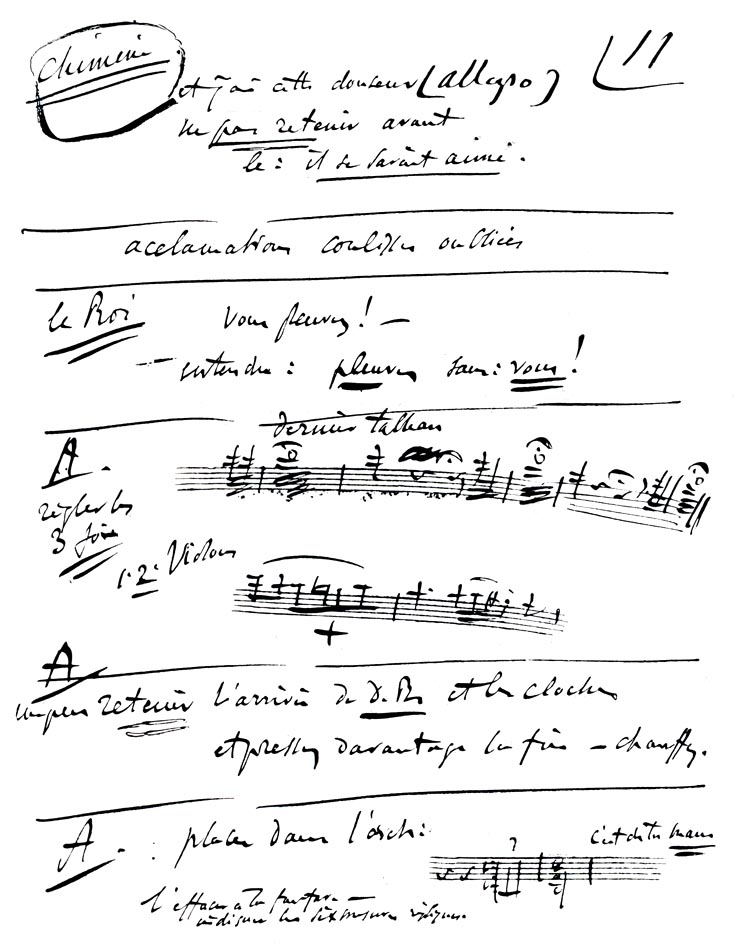 Chimène
11
et j'ai cette douceur (allegro)
ne pas retenir avant
le : il se savait aimé.
acclamations coulisses oubliées
le Roi Vous pleurez ! —
— entendre : pleurez sans : vous !
A. dernier tableau
régler les
3 fois
1. 2. Violons
A
un peu retenir l'arrivée de D. R. et les cloches
et pressez davantage la fin — chauffez.
A. : placer dans l'orch :
c'est de ta main
7
l'effacer à la fanfare —
indiquer les dix mesures